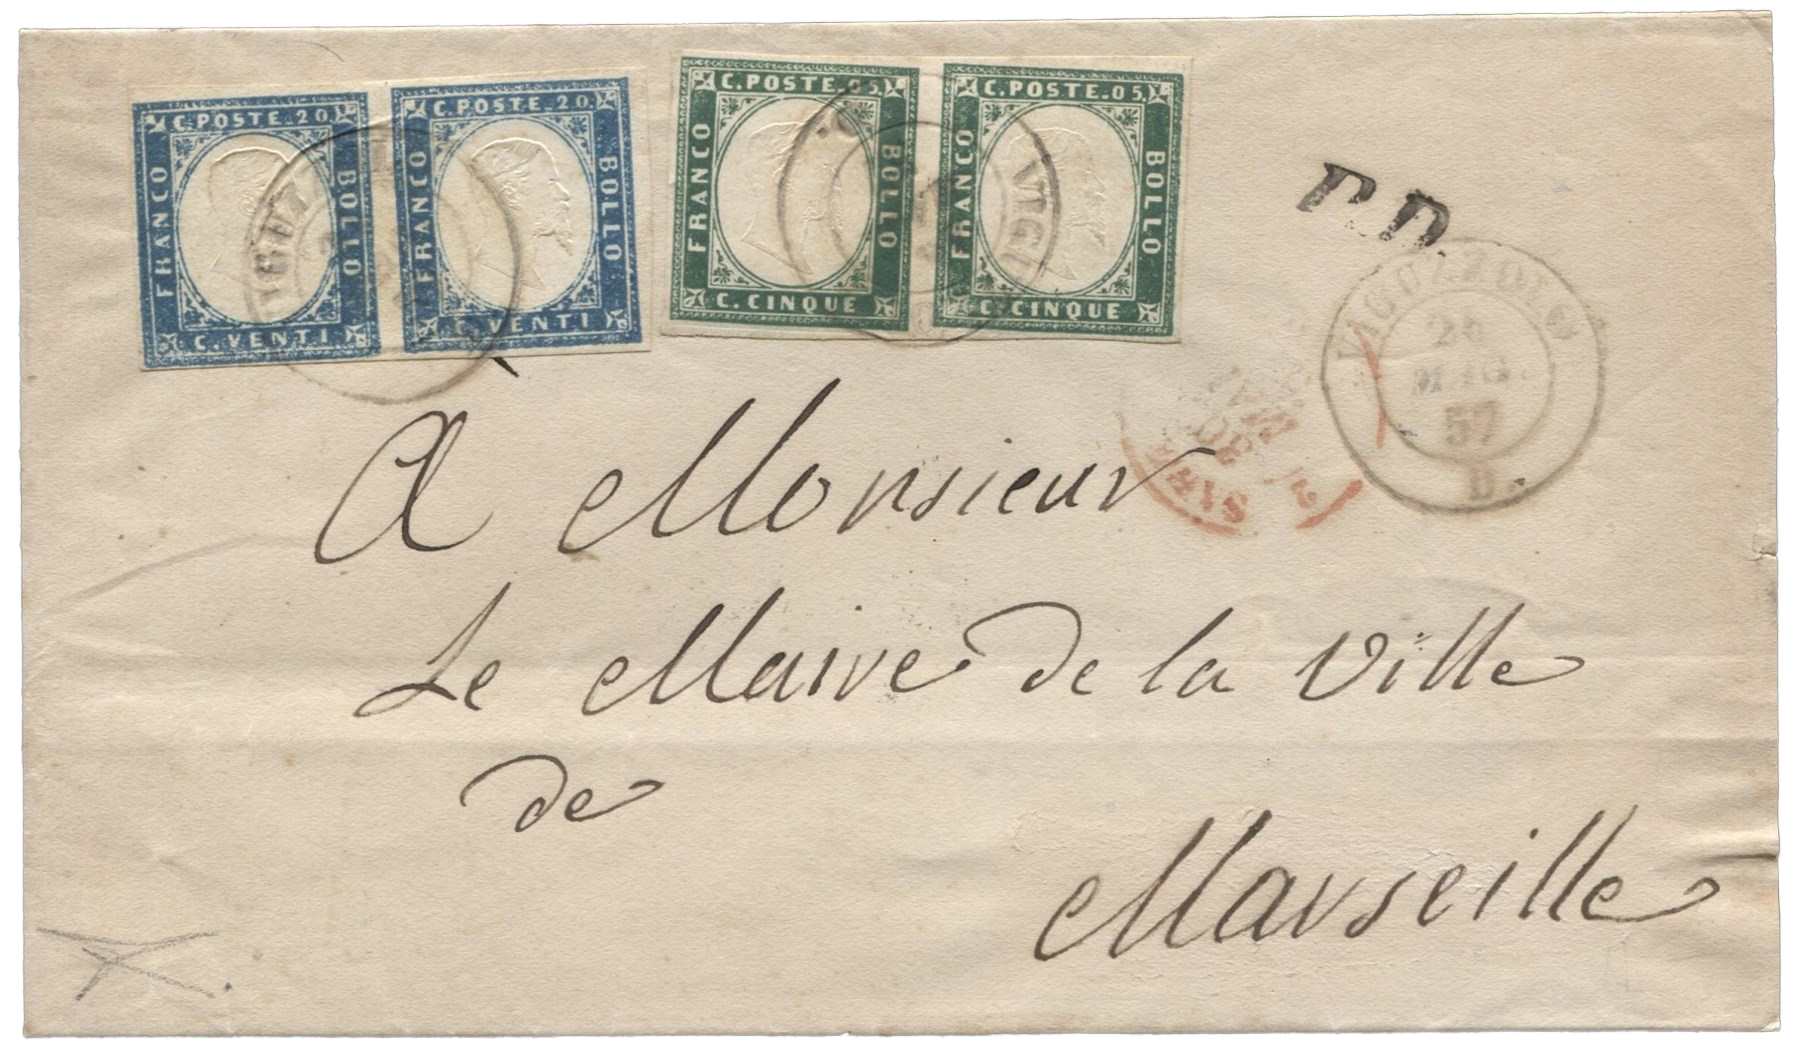 C. POSTE. 20. C. POSTE. 20. C. POSTE. 05. C. POSTE. 05.
FRANCO BOLLO FRANCO BOLLO FRANCO BOLLO FRANCO BOLLO
C. VENTI C. VENTI C. CINQUE C. CINQUE
P.D.
VIGUZZOLO
MAG.
57
D.
A Monsieur
Le Maire de la Ville
de
Marseille